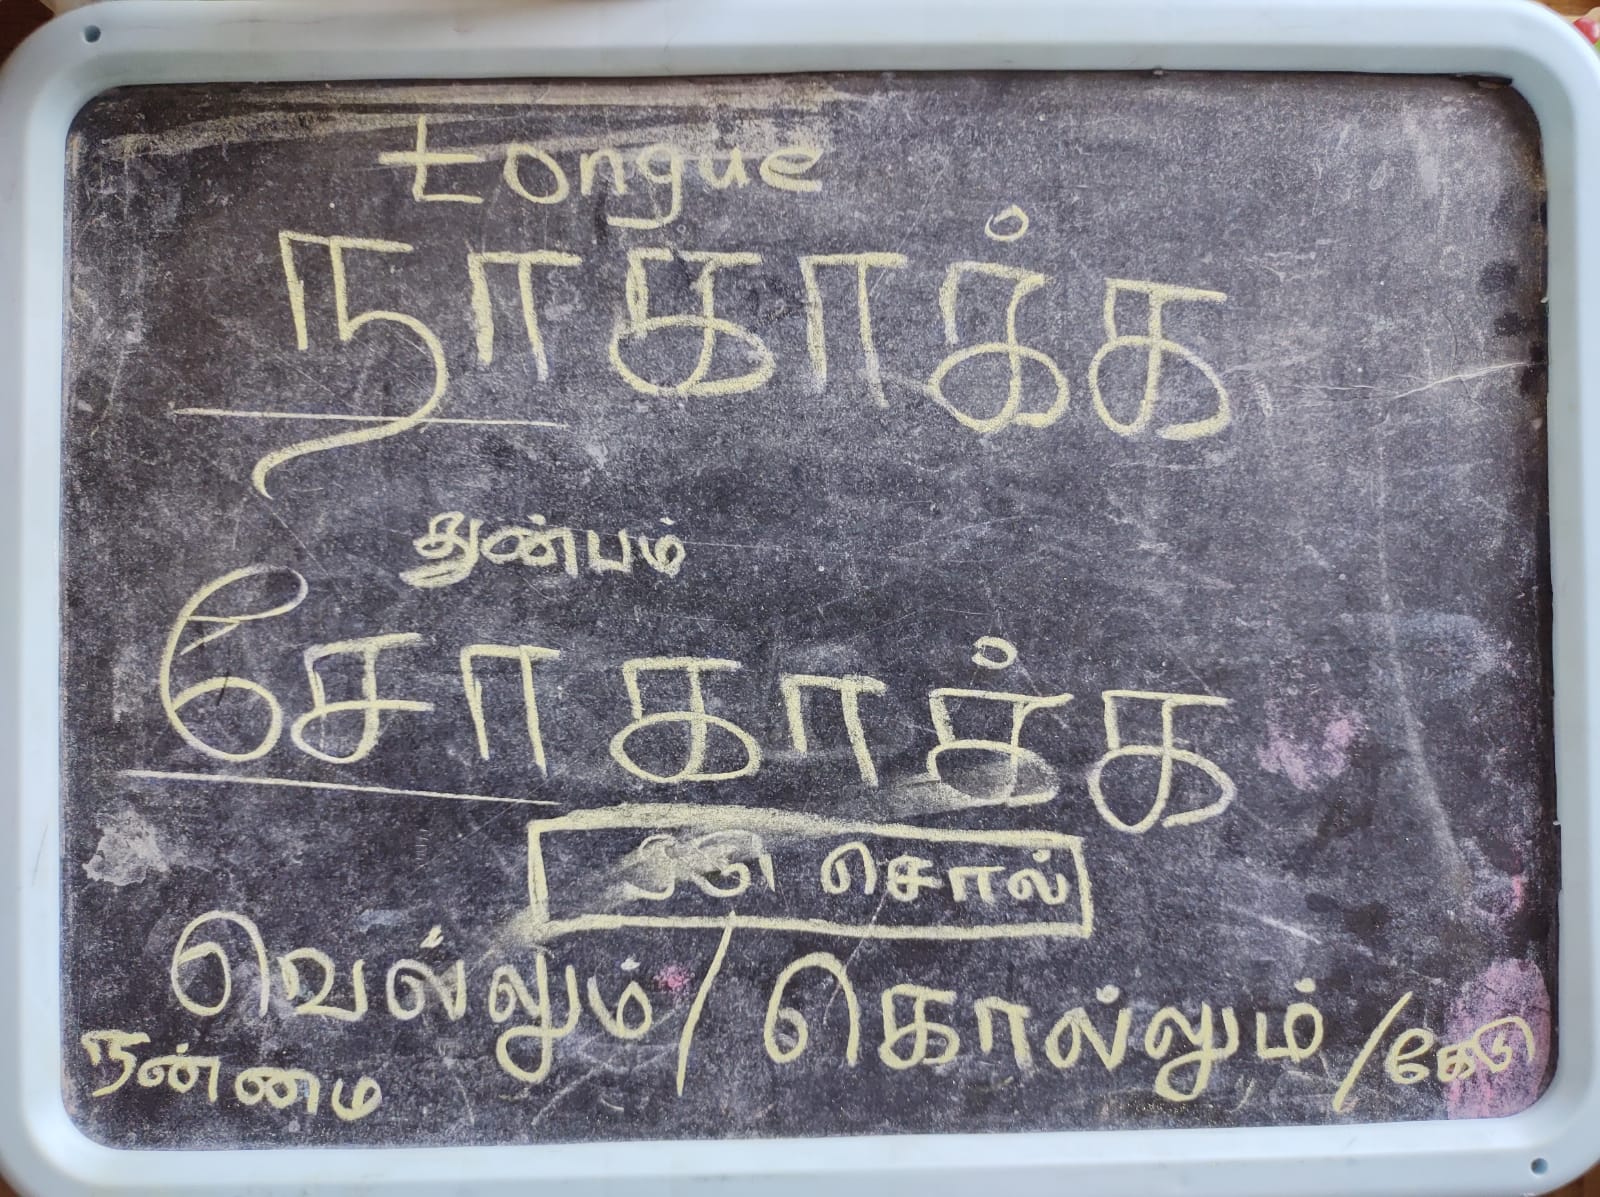 tongue
நாகாக்க
துன்பம்
சோகாக்க
ஒரு சொல்
வெல்லும் / கொல்லும் / கேடு
நன்மை